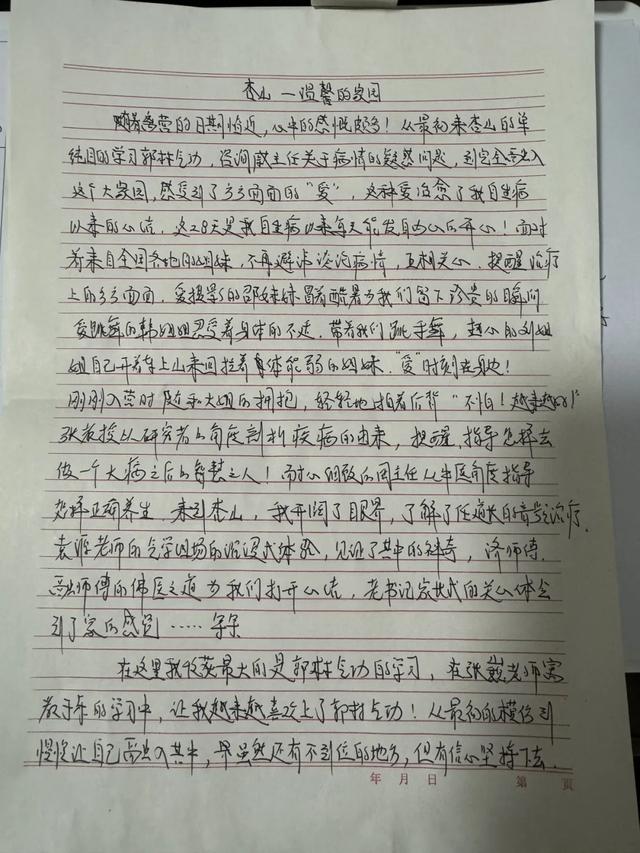 杏山一温馨的家园
随着离营的日期临近,心中的感慨颇多!从最初来杏山的单
纯目的学习郭林气功,咨询主任关于病情的疑然问题,到完全融入
这个大家园,感受到了方方面面的“爱”,这种爱治愈了我自生病
以来的心结,这28天是我自生病以来每天能发自内心的开心!面对
着来自全国各地的姐妹,不再避讳谈论病情,互相关心、提醒治疗
上的方方面面,爱摄影的邵妹妹冒着酷暑为我们留下珍贵的瞬间
爱跳舞的韩姐姐忍受着身体的不适,带着我们跳手舞,热心的刘姐
姐自己开着车上山来回拉着身体能弱的姐妹,“爱”时刻在身边!
刚刚入营时陆大姐的拥抱,轻轻地拍着后背“不怕!越来越好!”
张教授从研究者的角度剖析疾病的由来,提醒、指导怎样去
做一个大病之后的智慧之人!而心细致的周主任从中医角度指导
怎样正确养生,来到杏山,我开阔了眼界,了解了任道长的音频治疗,
袁老师的气学现场的沉浸式体验,见证了其中的神奇,济师傅、
师傅的佛医之道为我们打开心结,老书记家长式的关心体会
到了家的感觉……等等
在这里我收获最大的是郭林气功的学习,在张巍老师寓
教于乐的学习中,让我越来越喜欢上了郭林气功!从最初的模仿到
慢慢让自己融入其中,虽然还有不到位的地方,但有信心坚持下去.
年 月 日 第 页